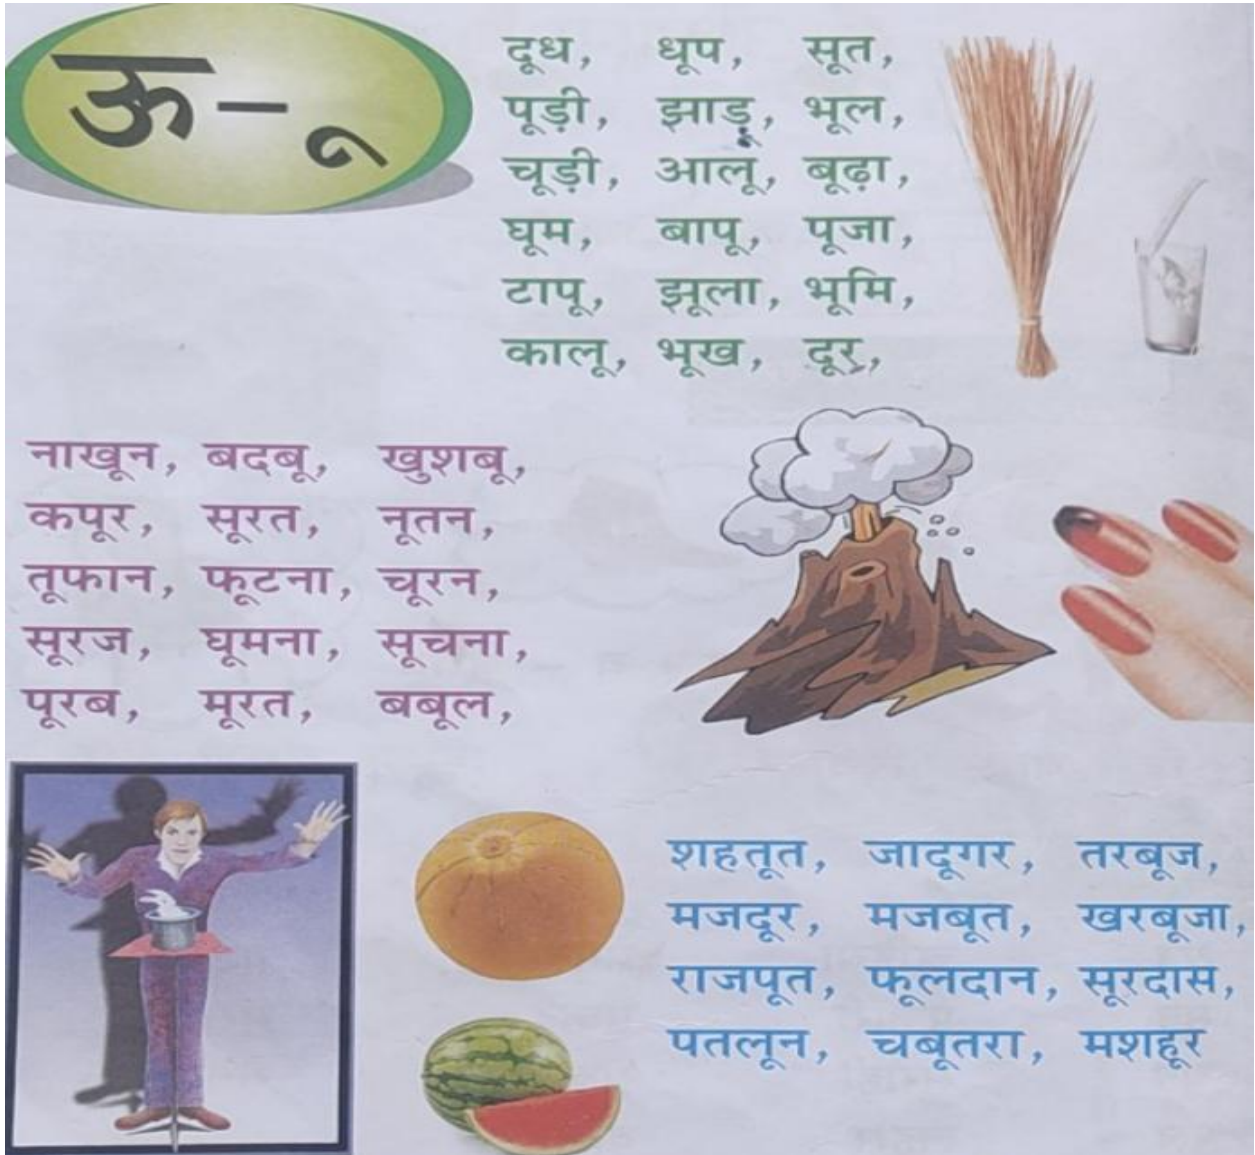 ऊ – ू
दूध, धूप, सूत,
पूड़ी, झाडू, भूल,
चूड़ी, आलू, बूढ़ा,
घूम, बापू, पूजा,
टापू, झूला, भूमि,
कालू, भूख, दूर,
नाखून, बदबू, खुशबू,
कपूर, सूरत, नूतन,
तूफान, फूटना, चूरन,
सूरज, घूमना, सूचना,
पूरब, मूरत, बबूल,
शहतूत, जादूगर, तरबूज,
मजदूर, मजबूत, खरबूजा,
राजपूत, फूलदान, सूरदास,
पतलून, चबूतरा, मशहूर